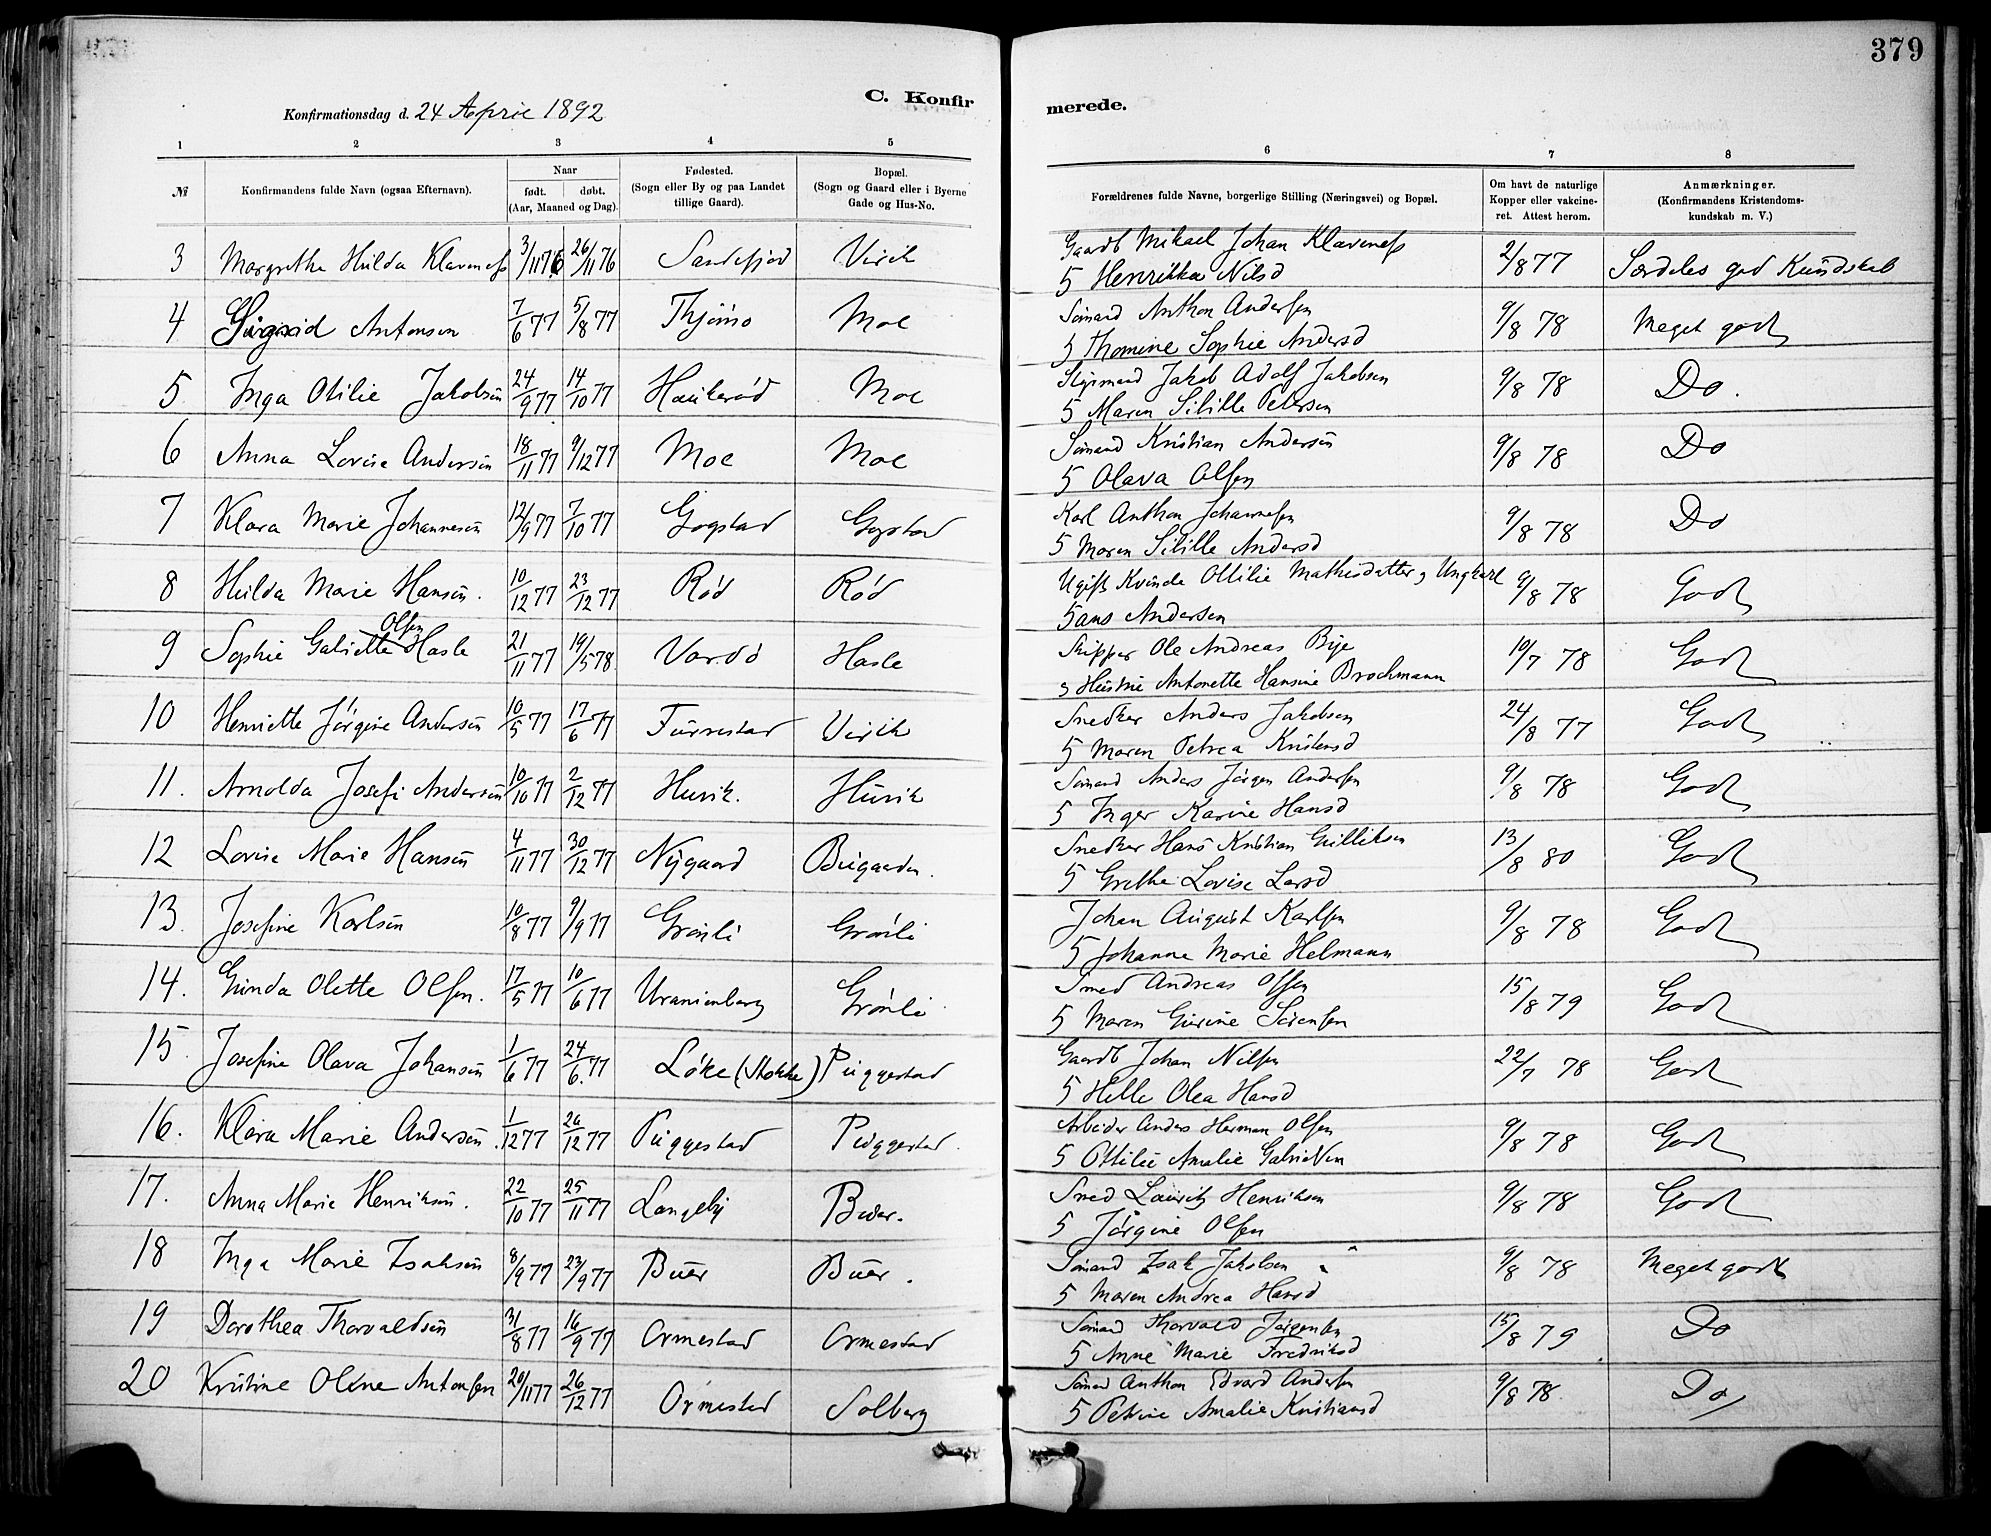 379
C. Konfir merede.
Konfirmationsdag d. 24 April 1892
1 2 3 4 5 6 7 8
№ Konfirmandens fulde Navn (ogsaa Efternavn). Naar født. døbt. (Aar, Maaned og Dag). Fødested. (Sogn eller By og paa Landet tillige Gaard). Bopæl. (Sogn og Gaard eller i Byerne Gade og Hus-No. Forældrenes fulde Navne, borgerlige Stilling (Næringsvei) og Bopæl. Om havt de naturlige Kopper eller vakcineret. Attest herom. Anmærkninger. (Konfirmandens Kristendomskundskab m. V.)
3 Margrethe Hilda Klaveness 3/11 76 26/11 76 Sandefjod Virik Gaardb Mikael Johan Klaveness
5 Henrikka Nilsd 2/8 77 Særdeles god Kundskab
4 Sigrid Antonsen 7/6 77 5/8 77 Thjømø Moe Sømand Anthon Anderssen
5 Thomine Sophie Andersd 9/8 78 Meget godt
5 Inga Otilie Jakobsen 24/9 77 14/10 77 Haukerød Moe Styrmand Jakob Adolf Jakobsen
5 Maren Sibille Petersen 9/8 78 Do.
6 Anna Lovise Andersen 18/11 77 9/12 77 Moe Moe Sømand Kristian Andersen
5 Olava Olssen 9/8 78 Do
7 Klara Marie Johannesen 12/9 77 7/10 77 Gogstad Gogstad Karl Anthon Johannessen
5 Maren Sibille Andersd 9/8 78 Do
8 Hilda Marie Hansen. 10/12 77 23/12 77 Rød Rød Ugift Kvinde Ottilie Mathisdatter og Ungkarl
Hans Andersen 9/8 78 Godt
9 Sophie Gabielle Olsen Hasle 21/11 77 19/5 78 Vardø Hasle Skipper Ole Andreas Bye
og Hustru Antonette Hansine Brochmann 10/7 78 Godt
10 Henriette Jørgine Andersen 10/5 77 17/6 77 Furrestad Virik Snedker Anders Jakobsen
5 Maren Petrea Kristensd 24/8 77 Godt
11. Arnolda Josefi Andersen 10/10 77 2/12 77 Huvik. Huvik Sømand Anders Jørgen Anderssen
5 Inger Karine Hansd 9/8 78 Godt
12 Lovise Marie Hansen 4/11 77 30/12 77 Nygaard Bugaarden. Snedker Hans Kristian Gulliksen
5 Grethe Lovise Larsd 13/8 80 Godt
13 Josefine Karlsen 10/8 77 9/9 77 Grønli Grønli Johan August Karlssen
5 Johanne Marie Helmann 9/8 78 Godt
14. Gunda Olette Olssen. 17/5 77 10/6 77 Uranienborg Grønli Smed Andreas Olssen
5 Maren Gurine Sørenssen 15/8 79 Godt
15. Josefine Olava Johansen 1/6 77 24/6 77 Løke (Stokke) Puggestad Gaardb Johan Nilssen
5 Helle Olea Hansd 22/7 78 Godt
16. Klara Marie Andersen. 1/12 77 26/12 77 Puggestad Puggestad. Arbeider Anders Herman Olssen
5 Ottilie Amalie Gabrielsen 9/8 78 Godt
17. Anna Marie Henriksen. 22/10 77 25/11 77 Langeby Buer. Smed Lauritz Henriksen
5 Jørgine Olssen 9/8 78 Godt
18 Inga Marie Isaksen 8/9 77 23/9 77 Buer Buer. Sømand Isak Jakobsen
5 Maren Andrea Hansd 9/8 78 Meget godt
19 Dorothea Thorvaldsen 31/8 77 16/9 77 Ormestad Ormestad Sømand Thorvald Jørgenssen
5 Anne Marie Fredriksd 15/8 79 Do
20 Kristine Oline Antonssen 20/11 77 26/12 77 Ormestad Solberg Sømand Anthon Edvard Anderssen
5 Petrine Amalie Kristiansd 9/8 78. Do